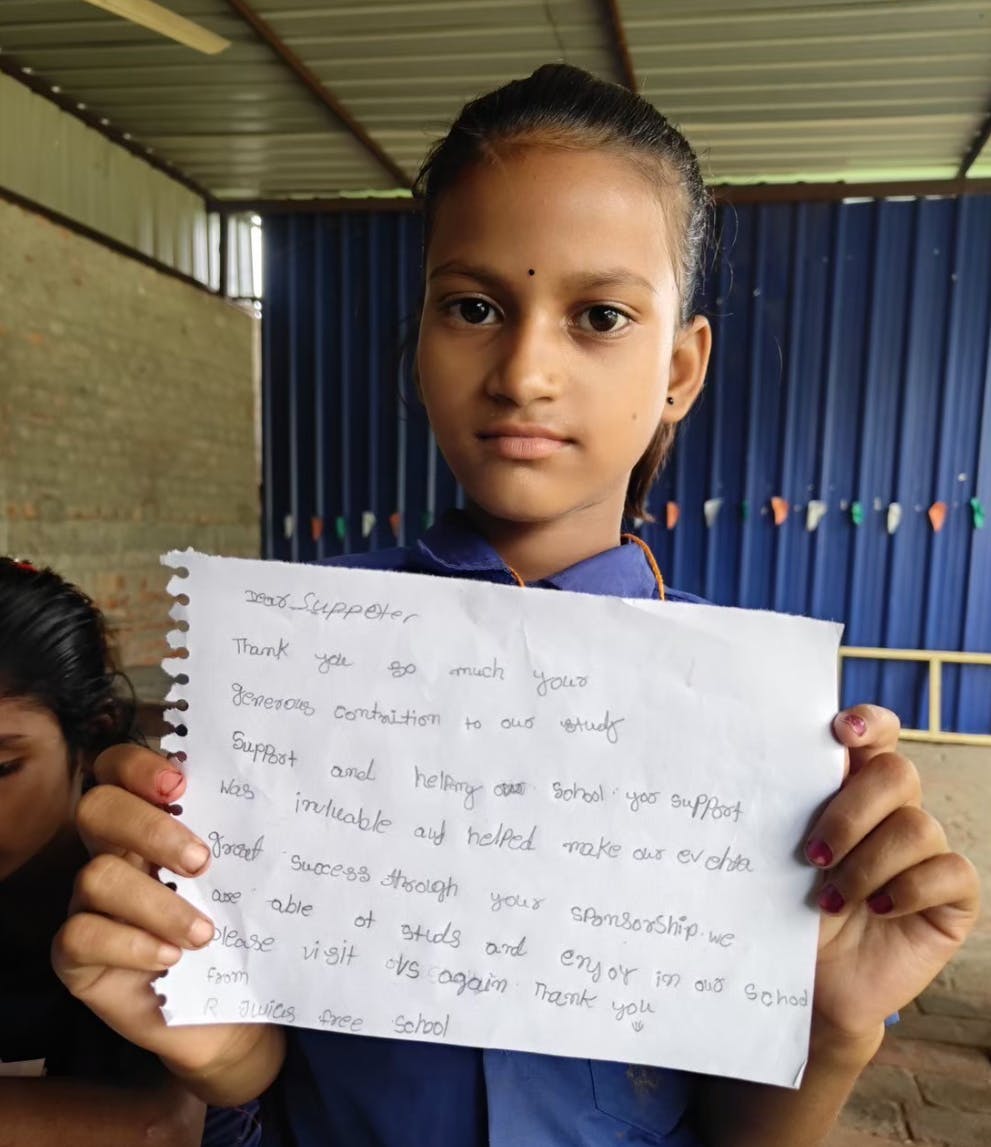 Dear Suppoter
Thank you so much your
generous contrition to our study
Support and helping our school your support
was inluable and helped make our
great success through your sponsorship. we
are able of studs and enjoy in our school
please visit us again. Thank you
from
R free school